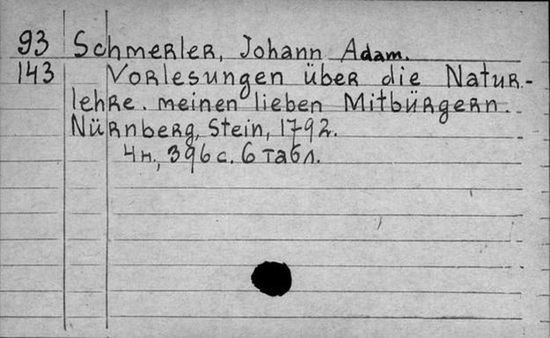 93 Schmerler, Johann Adam.
143 Vorlesungen über die Natur-
lehre. meinen lieben Mitbürgern.
Nürnberg, Stein, 1792.
4н., 396 с. 6 табл.